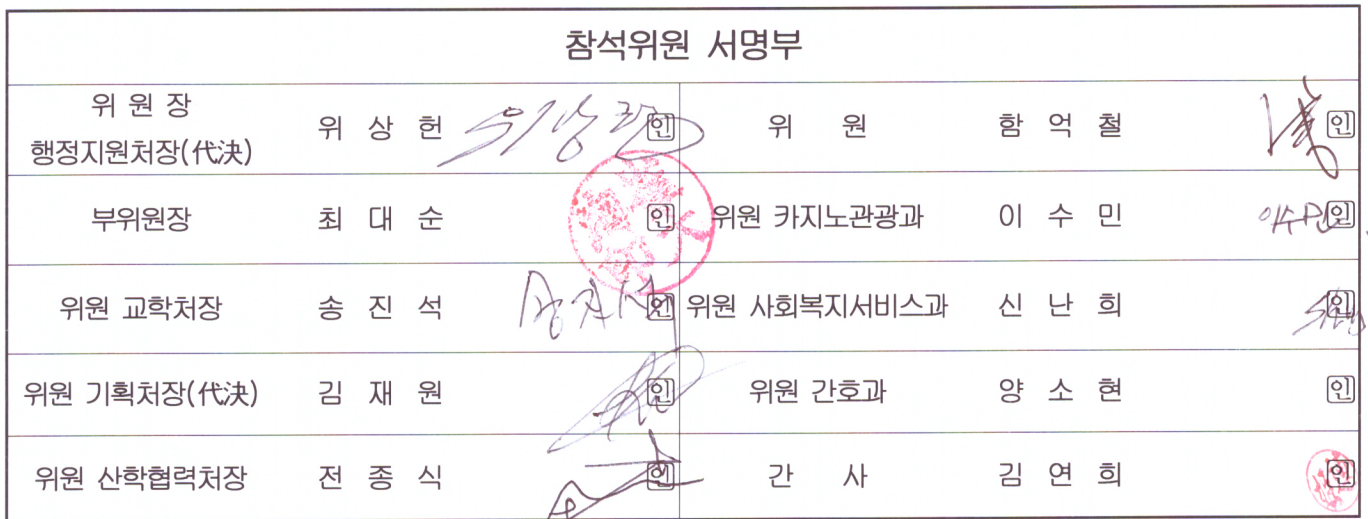 참석위원 서명부
위 원 장
행정지원처장(代決)
위 상 헌
위상헌
인
위 원
함 억 철
인
부위원장
최 대 순
인
위원 카지노관광과
이 수 민
이수민
인
위원 교학처장
송 진 석
인
위원 사회복지서비스과
신 난 희
인
위원 기획처장(代決)
김 재 원
인
위원 간호과
양 소 현
인
위원 산학협력처장
전 종 식
인
간 사
김 연 희
인